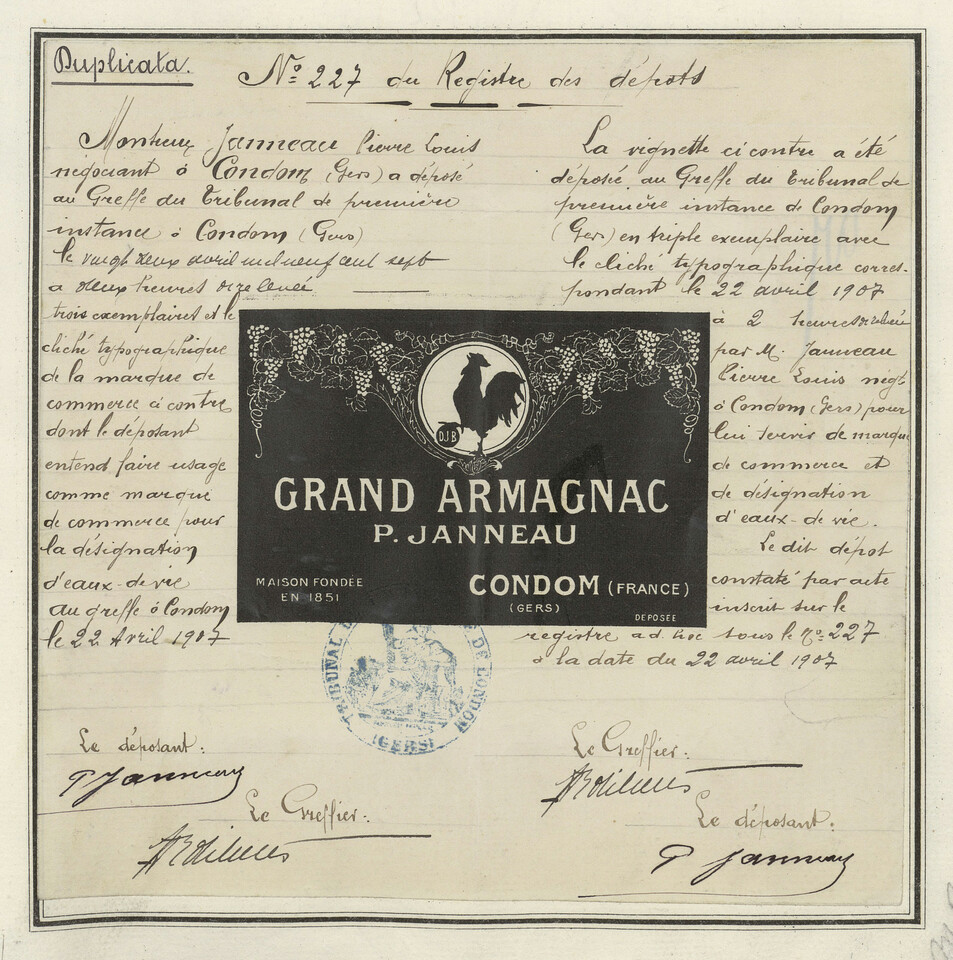 Duplicata.
No. 227 du Registre des dépots
Monsieur Janneau Pierre Louis
négociant à Condom (Gers) a déposé
au Greffe du Tribunal de première
instance à Condom (Gers)
le vingt deux avril mil neuf cent sept
a deux heures de relevée
trois exemplaires et le
cliché typographique
de la marque de
commerce ci contre
dont le déposant
entend faire usage
comme marque
de commerce pour
la désignation
d'eaux-de-vie
au greffe à Condom
le 22 Avril 1907
La vignette ci contre a été
déposée au Greffe du Tribunal de
première instance de Condom
(Gers) en triple exemplaire avec
le cliché typographique corres-
pondant le 22 avril 1907
à 2 heures de relevée
par M. Janneau
Pierre Louis négt
à Condom (Gers) pour
lui servir de marque
de commerce et
de désignation
d'eaux-de-vie.
Le dit dépot
constaté par acte
inscrit sur le
registre ad hoc sous le No. 227
à la date du 22 avril 1907
DJB
GRAND ARMAGNAC
P. JANNEAU
MAISON FONDÉE
EN 1851
CONDOM (FRANCE)
(GERS)
DEPOSÉE
TRIBUNAL DE CONDOM
(GERS)
Le déposant:
P Janneau
Le Greffier:
Le Greffier:
Le déposant:
P Janneau